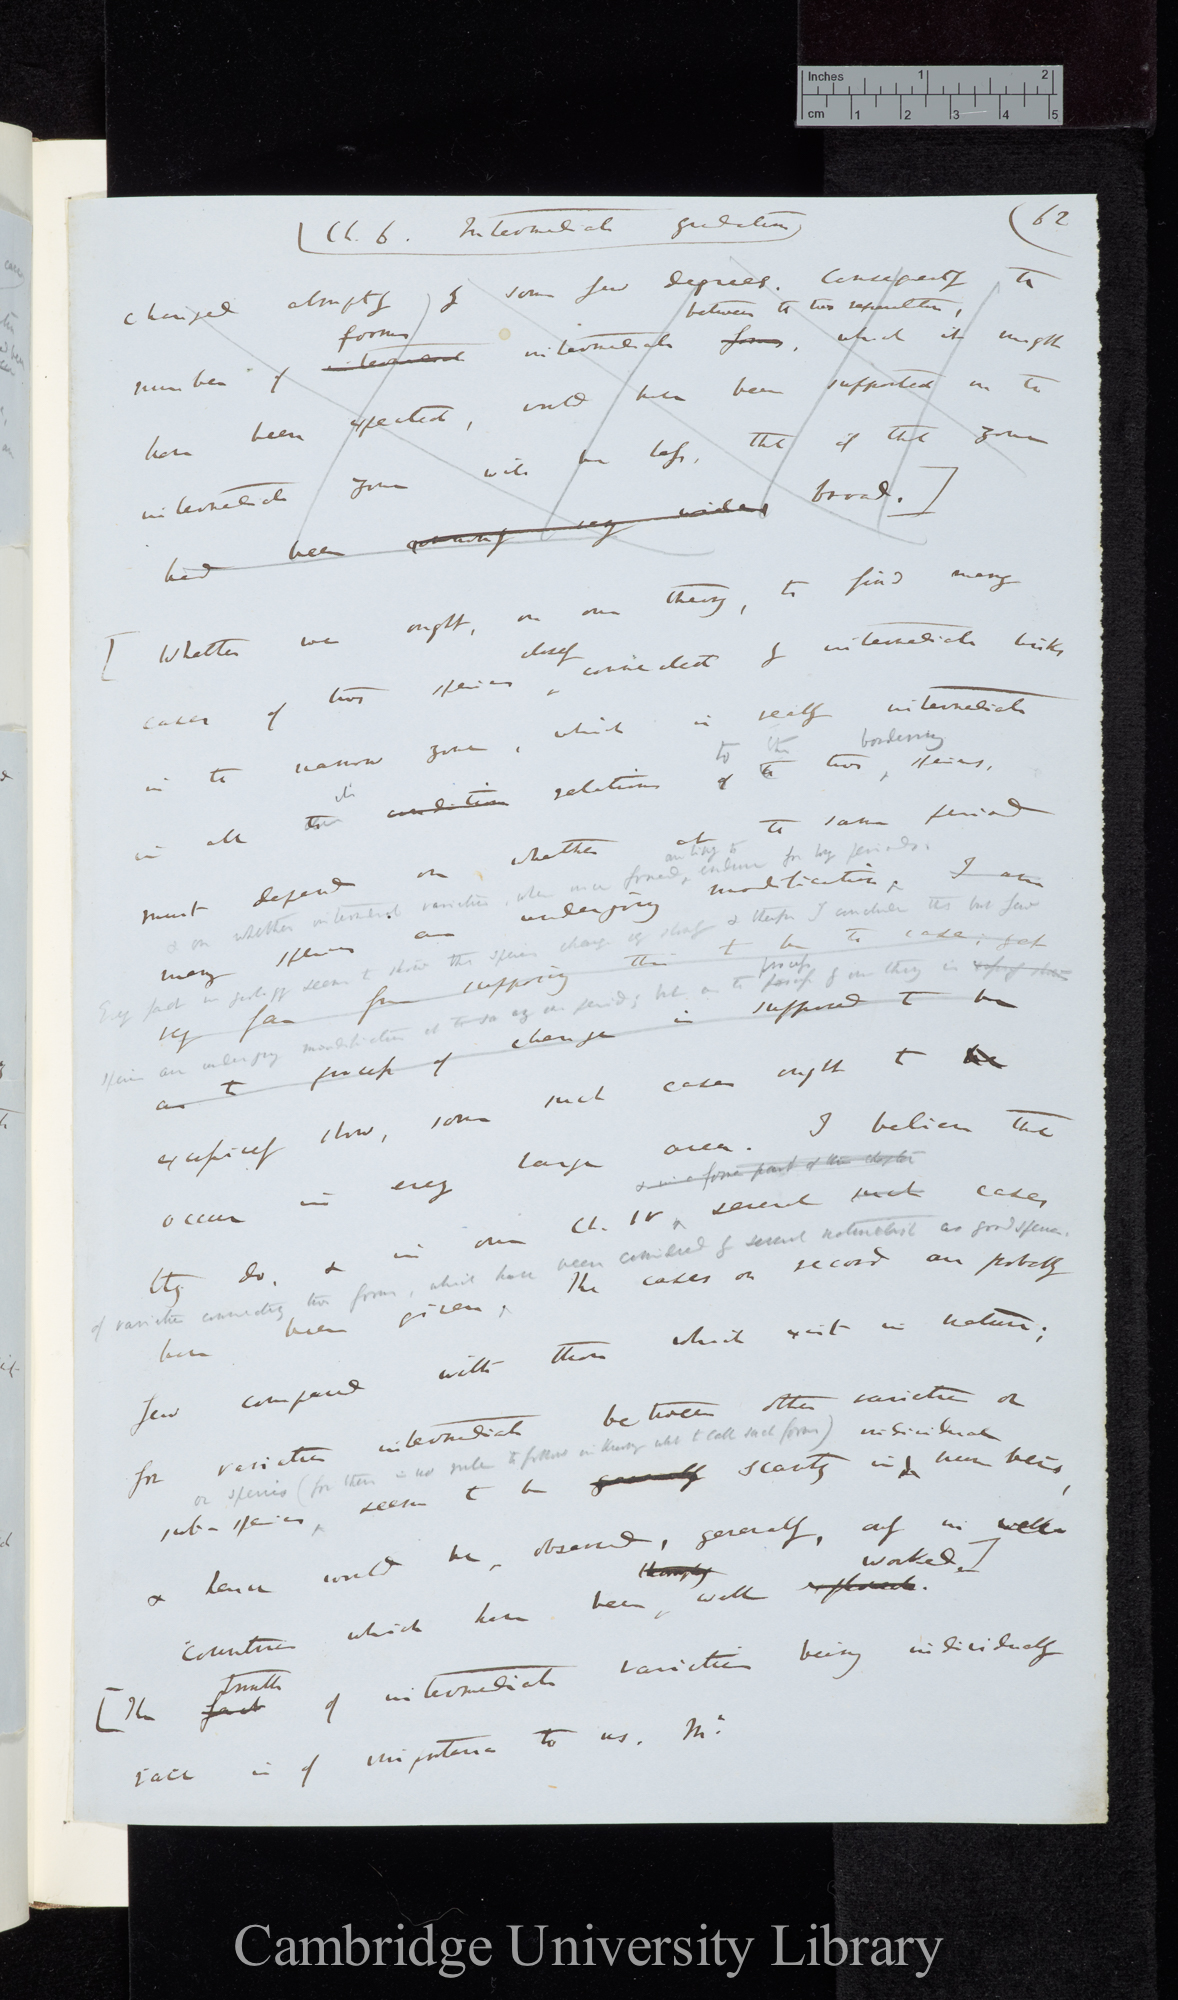 Inches 1 2
cm 1 2 3 4 5
(Ch. 6. Intermediate gradations)
(62
changed abruptly) by some few degrees. Consequently the
forms
between the two varieties,
number of intermediate forms, which it might
have been expected, would have been supported in the
intermediate zone will be less, than if that zone
had been broad.]
[Whether we ought, on our theory, to find many
closely
cases of two species connected by intermediate links
in the narrow zone, which is really intermediate
to the bordering
its
in all condition relations of the two species,
must depend on whether at the same period
& on whether intermediate varieties, when once formed, endure for long periods.
many species are undergoing modification. I am
Every fact in geology seems to show that species change very slowly & therefore I conclude that but few
very far from supposing this to be the case, yet
process
species are undergoing modification at the same period; but as the process by our theory is
as the process of change is supposed to be
expressly slow, some such cases ought to be
occur in every large area. I believe that
& in a former part of this chapter
they do, & in our Ch. IV several such cases
of varieties connecting two forms, which have been considered by several naturalists as good species.
have been given. The cases on record are probably
few compared with those which exist in nature;
for varieties intermediate between other varieties or
or species (for there is no rule to follow in knowing what to call such forms) individual
sub-species, seem to be generally scanty in numbers,
& hence would be observed, generally, only in well
thoroughly worked.]
countries which have been well explored.
truth
[The fact of intermediate varieties being individually
rare is of importance to us. Mr.
Cambridge University Library